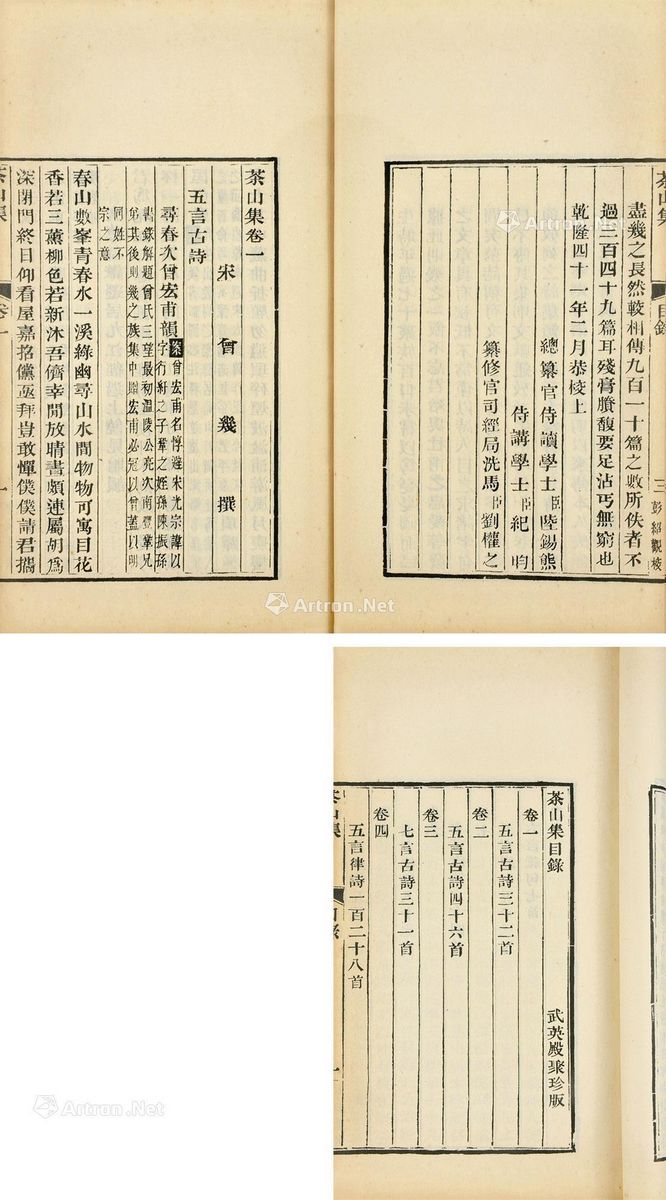 盡幾之長然較相傳九百一十篇之數所佚者不
過三百四十九篇耳殘膏賸馥要足沾丐無窮也
乾隆四十一年二月恭校上
總纂官侍讀學士臣陸錫熊
侍講學士臣紀昀
纂修官司經局洗馬臣劉權之
茶山集
目錄
三
彭紹觀校
茶山集卷一
宋 曾幾 撰
五言古詩
尋春次曾宏甫韻
案曾宏甫名惇避宋光宗諱以
字行紆之子鞏之姪孫陳振孫
書錄解題曾氏三望最初溫陵公亮次南豐鞏兄
弟其後則幾之族集中贈宏甫必冠以曾蓋以明
同姓不
宗之意
春山數峯青春水一溪綠幽尋山水間物物可寓目花
香若三薰柳色若新沐吾儕幸閒放晴書頗連屬胡爲
深閉門終日仰看屋嘉招儻亟拜豈敢憚僕僕請君攜
茶山集
卷一
一
Artron.Net
茶山集目錄
武英殿聚珍版
卷一
五言古詩三十二首
卷二
五言古詩四十六首
卷三
七言古詩三十一首
卷四
五言律詩一百二十八首
茶山集
目錄
一
Artron.Net